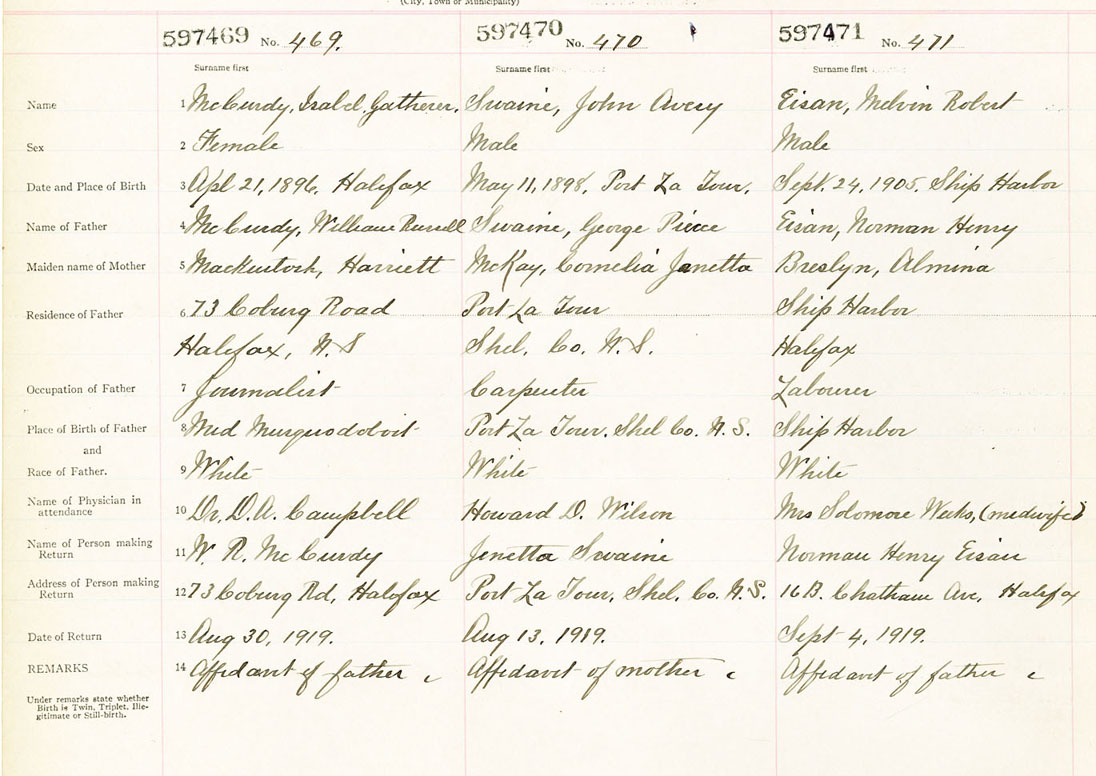 (City, Town or Municipality)
597469 No. 469. 597470 No. 470 597471 No. 471
Surname first Surname first Surname first
Name 1 McCurdy, Isabel Gatherer. Swaine, John Avery Eisan, Melvin Robert
Sex 2 Female Male Male
Date and Place of Birth 3 Apl 21, 1896, Halifax May 11, 1898, Port La Tour. Sept. 24, 1905. Ship Harbor
Name of Father 4 McCurdy, William Russell Swaine, George Eisan, Norman Henry
Maiden name of Mother 5 Mackintosh, Harriett McKay, Cornelia Janetta Breslyn, Almina
Residence of Father 6 73 Coburg Road Port La Tour Ship Harbor
Halifax, N.S Shel. Co. N.S. Halifax
Occupation of Father 7 Journalist Carpenter Labourer
Place of Birth of Father 8 Mid Musquodoboit Port La Tour. Shel Co. N.S. Ship Harbor
and
Race of Father. 9 White White White
Name of Physician in
attendance 10 Dr. D.A. Campbell Howard D. Wilson Mrs Solomore Weeks, (medwife)
Name of Person making
Return 11 W. R. McCurdy Jenetta Swaine Norman Henry Eisan
Address of Person making
Return 12 73 Coburg Rd, Halofax Port La Tour, Shel. Co. N.S. 16B. Chatham Ave, Halifax
Date of Return 13 Aug 30, 1919. Aug 13, 1919. Sept 4, 1919.
REMARKS 14 Affidavit of father c Affidavit of mother c Affidavit of father c
Under remarks state whether
Birth is Twin, Triplet, Ille-
gitimate or Still-birth.